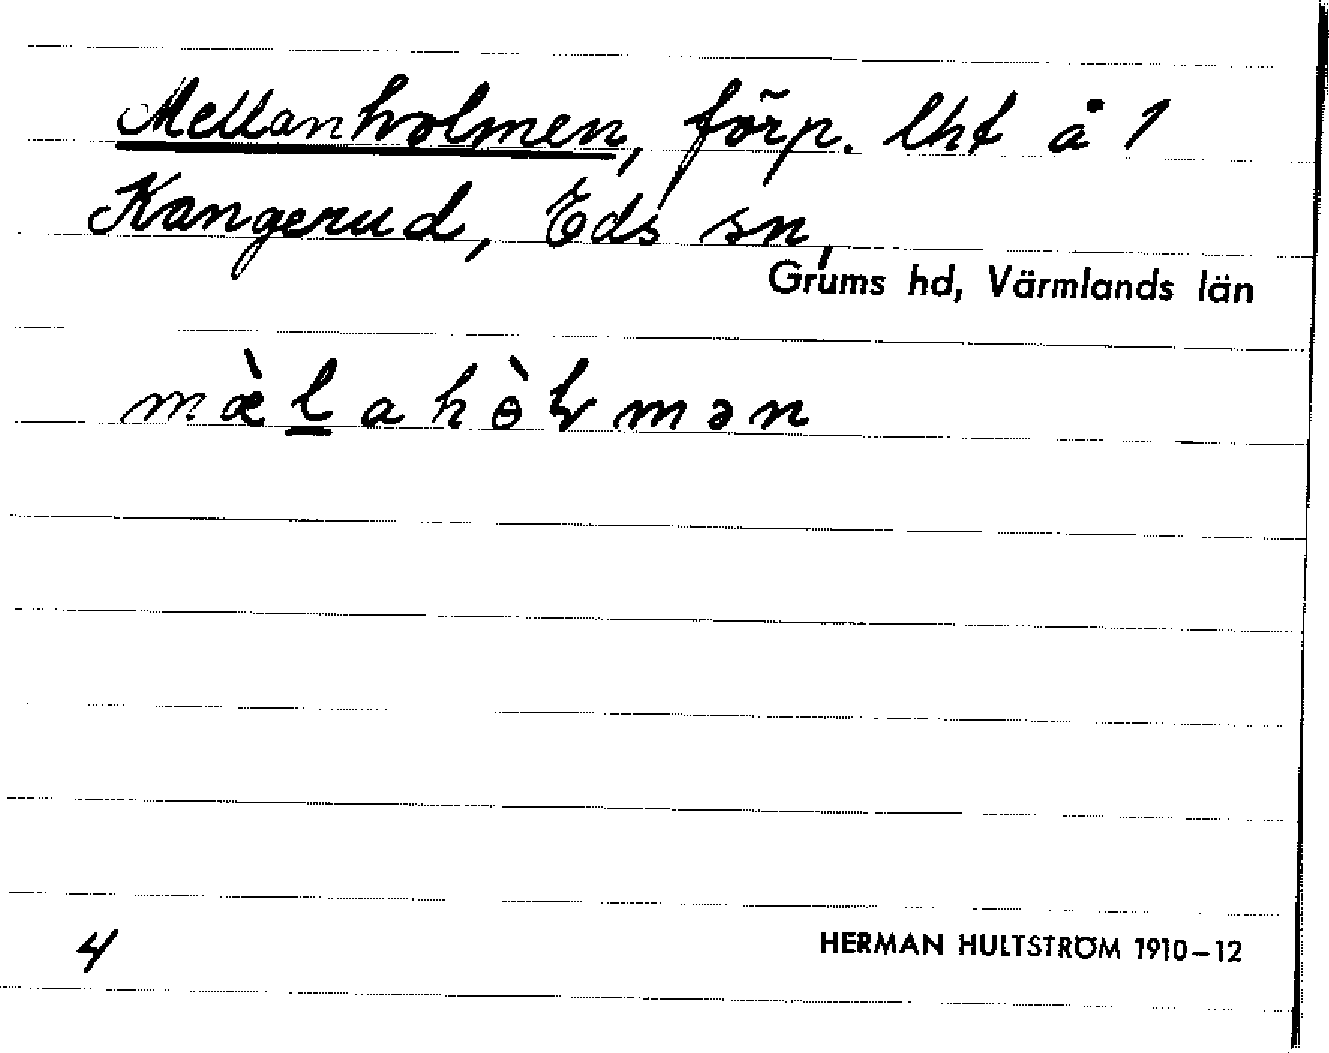 Mellanholmen, förp. lht å 1
Kangerud, Eds sn,
Grums hd, Värmlands län
mæ̀l̲ahɵ̀ɫmən
4
HERMAN HULTSTRÖM 1910–12